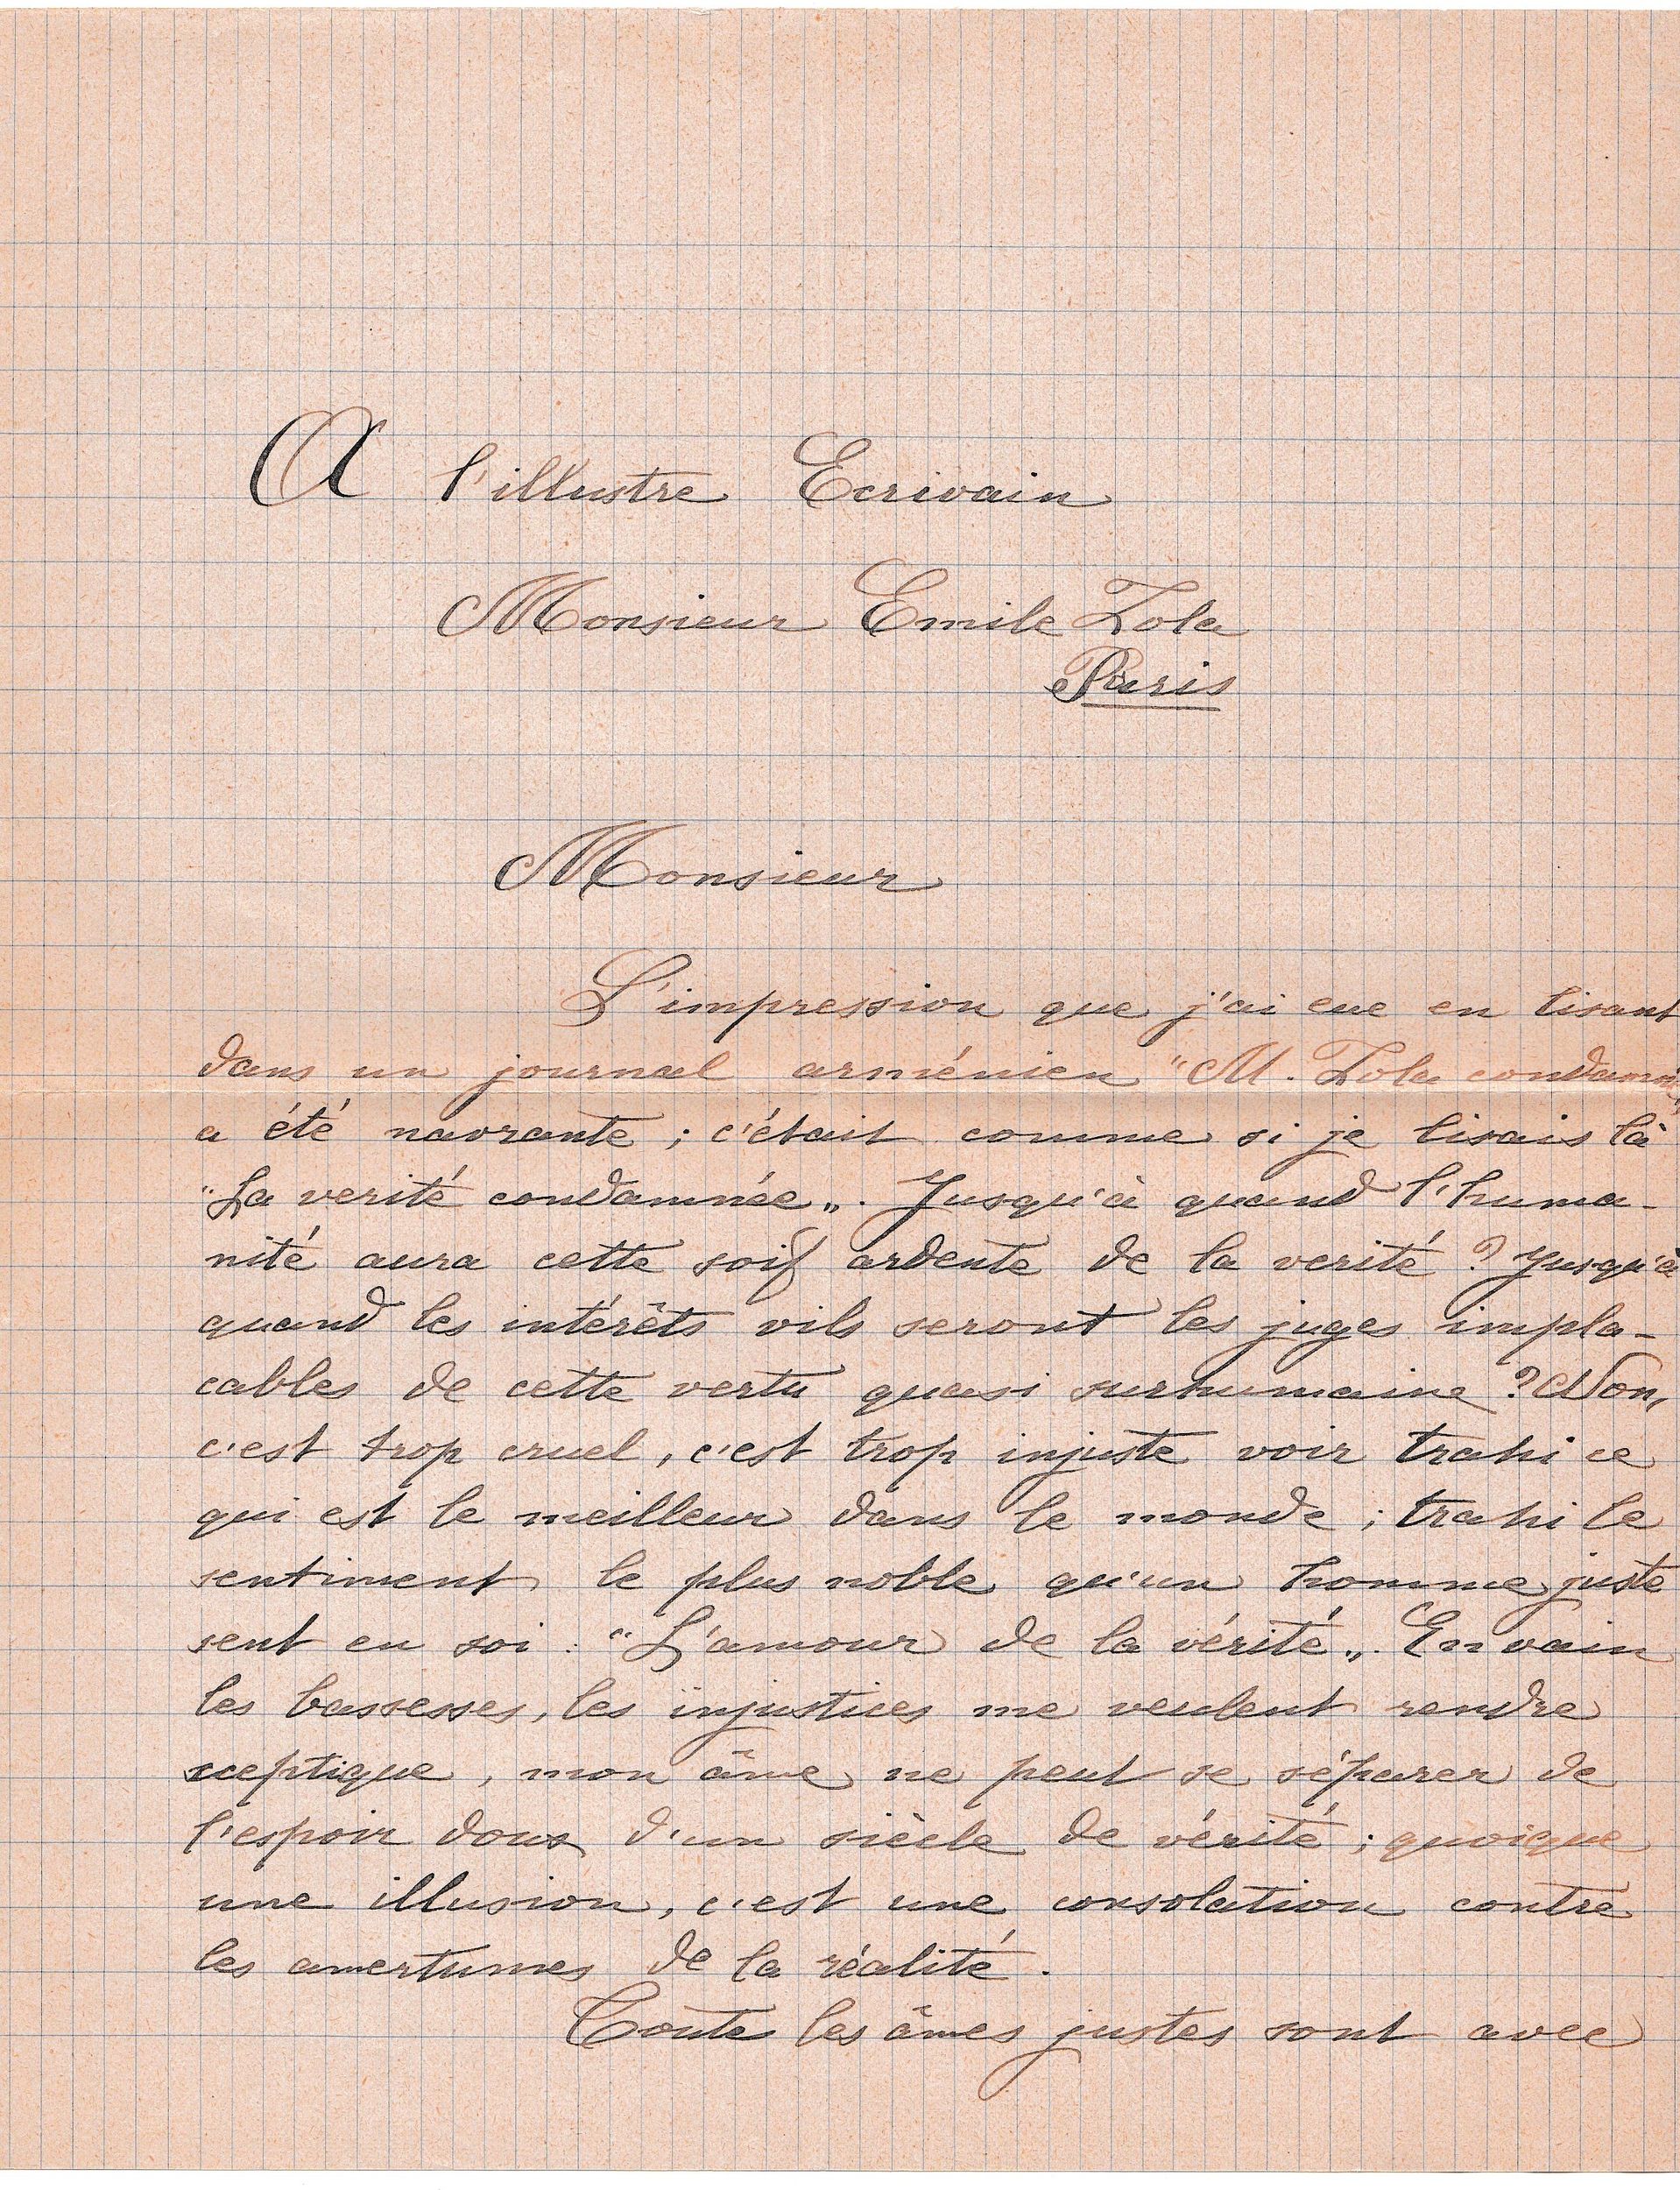 A l'illustre Ecrivain
Monsieur Emile Zola
Paris
Monsieur
L'impression que j'ai eue en lisant
dans un journal arménien "M. Zola condamné„
a été navrante ; c'était comme si je lisais là
"La verité condamnée„. Jusqu'à quand l'huma-
nité aura cette soif ardente de la verité ? Jusqu'à
quand les intérêts vils seront les juges impla-
cables de cette vertu quasi surhumaine ? Non,
c'est trop cruel, c'est trop injuste voir trahi ce
qui est le meilleur dans le monde ; trahi le
sentiment le plus noble qu'un homme juste
sent en soi : "L'amour de la vérité„. En vain
les bassesses, les injustices me veulent rendre
sceptique, mon âme ne peut se séparer de
l'espoir doux d'un siècle de vérité ; quoique
une illusion, c'est une consolation contre
les amertumes de la réalité.
Toutes les âmes justes sont avec